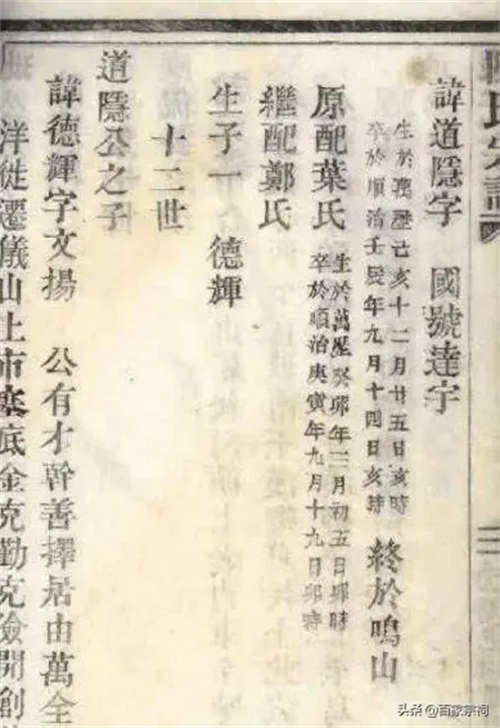 諱道隱字 國號達宇
生於萬歷己亥十二月廿五日亥時
卒於順治壬辰年九月十四日亥時
終於鳴山
原配葉氏
生於萬歷癸卯年三月初五日卯時
卒於順治庚寅年九月十九日卯時
繼配鄭氏
生子一 德輝
十二世
道隱公之子
諱德輝字文揚 公有才幹善擇居由萬全
洋徙遷儀山上市塞底金克勤克儉開創
头条 @百家宗祠